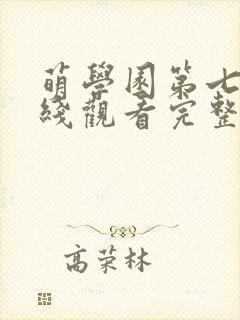 萌學園第七
綫觀看完整
高荣林